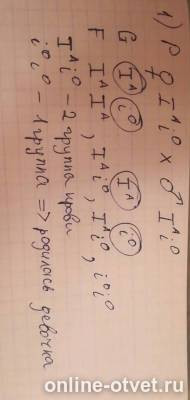 1) P ♀ I^A i^0 × ♂ I^A i^0
G I^A i^0 I^A i^0
F I^A I^A, I^A i^0, I^A i^0, i^0 i^0
I^A i^0 – 2 группа крови
i^0 i^0 – 1 группа => родилось девочка
online-otvet.ru